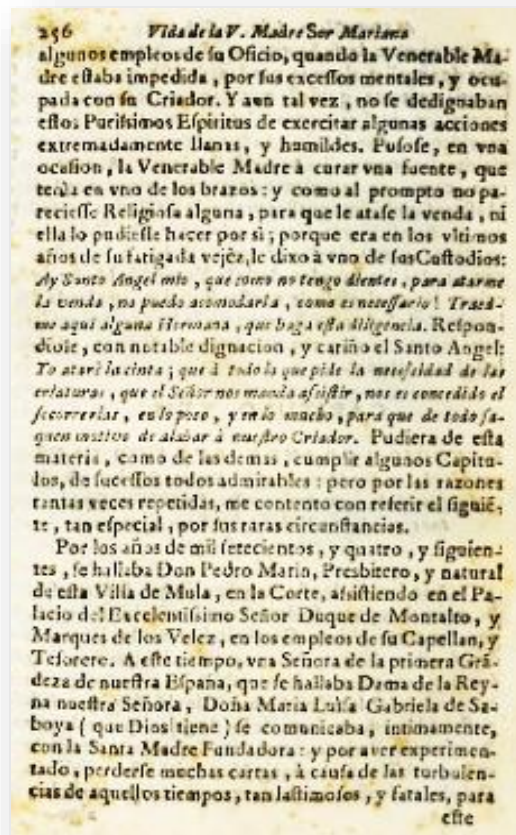 256 Vida de la V. Madre Sor Mariana
algunos empleos de su Oficio, quando la Venerable Ma-
dre estaba impedida, por sus excessos mentales, y ocu-
pada con su Criador. Y aun tal vez, no se dedignaban
estos Purissimos Espiritus de exercitar algunas acciones
extremadamente llanas, y humildes. Pusose, en vna
ocasion, la Venerable Madre à curar vna fuente, que
tenia en vno de los brazos: y como al prompto no pa-
reciesse Religiosa alguna, para que le atase la venda, ni
ella lo pudiesse hacer por si; porque era en los vltimos
años de su fatigada vejèz, le dixo à vno de sus Custodios:
Ay Santo Angel mio, que como no tengo dientes, para atarme
la venda, no puedo acomodarla, como es necessario! Traed-
me aqui alguna Hermana, que haga esta diligencia. Respon-
diole, con notable dignacion, y cariño el Santo Angel:
Yo atarè la cinta; que à todo lo que pide la necessidad de las
criaturas, que el Señor nos manda assistir, nos es concedido el
socorrerlas, en lo poco, y en lo mucho, para que de todo sa-
quen motivo de alabar à nuestro Criador. Pudiera de esta
materia, como de las demas, cumplir algunos Capitu-
los, de sucessos todos admirables: pero por las razones
tantas veces repetidas, me contento con referir el siguiē-
te, tan especial, por sus raras circunstancias.
Por los años de mil setecientos, y quatro, y siguien-
tes, se hallaba Don Pedro Marin, Presbitero, y natural
de esta Villa de Mula, en la Corte, assistiendo en el Pa-
lacio del Excelentissimo Señor Duque de Montalto, y
Marques de los Velez, en los empleos de su Capellan, y
Tesorero. A este tiempo, vna Señora de la primera Grā-
deza de nuestra España, que se hallaba Dama de la Rey-
na nuestra Señora, Doña Maria Luisa Gabriela de Sa-
boya (que Dios tiene) se comunicaba, intimamente,
con la Santa Madre Fundadora: y por aver experimen-
tado, perderse muchas cartas, à causa de las turbulen-
cias de aquellos tiempos, tan lastimosos, y fatales, para
este